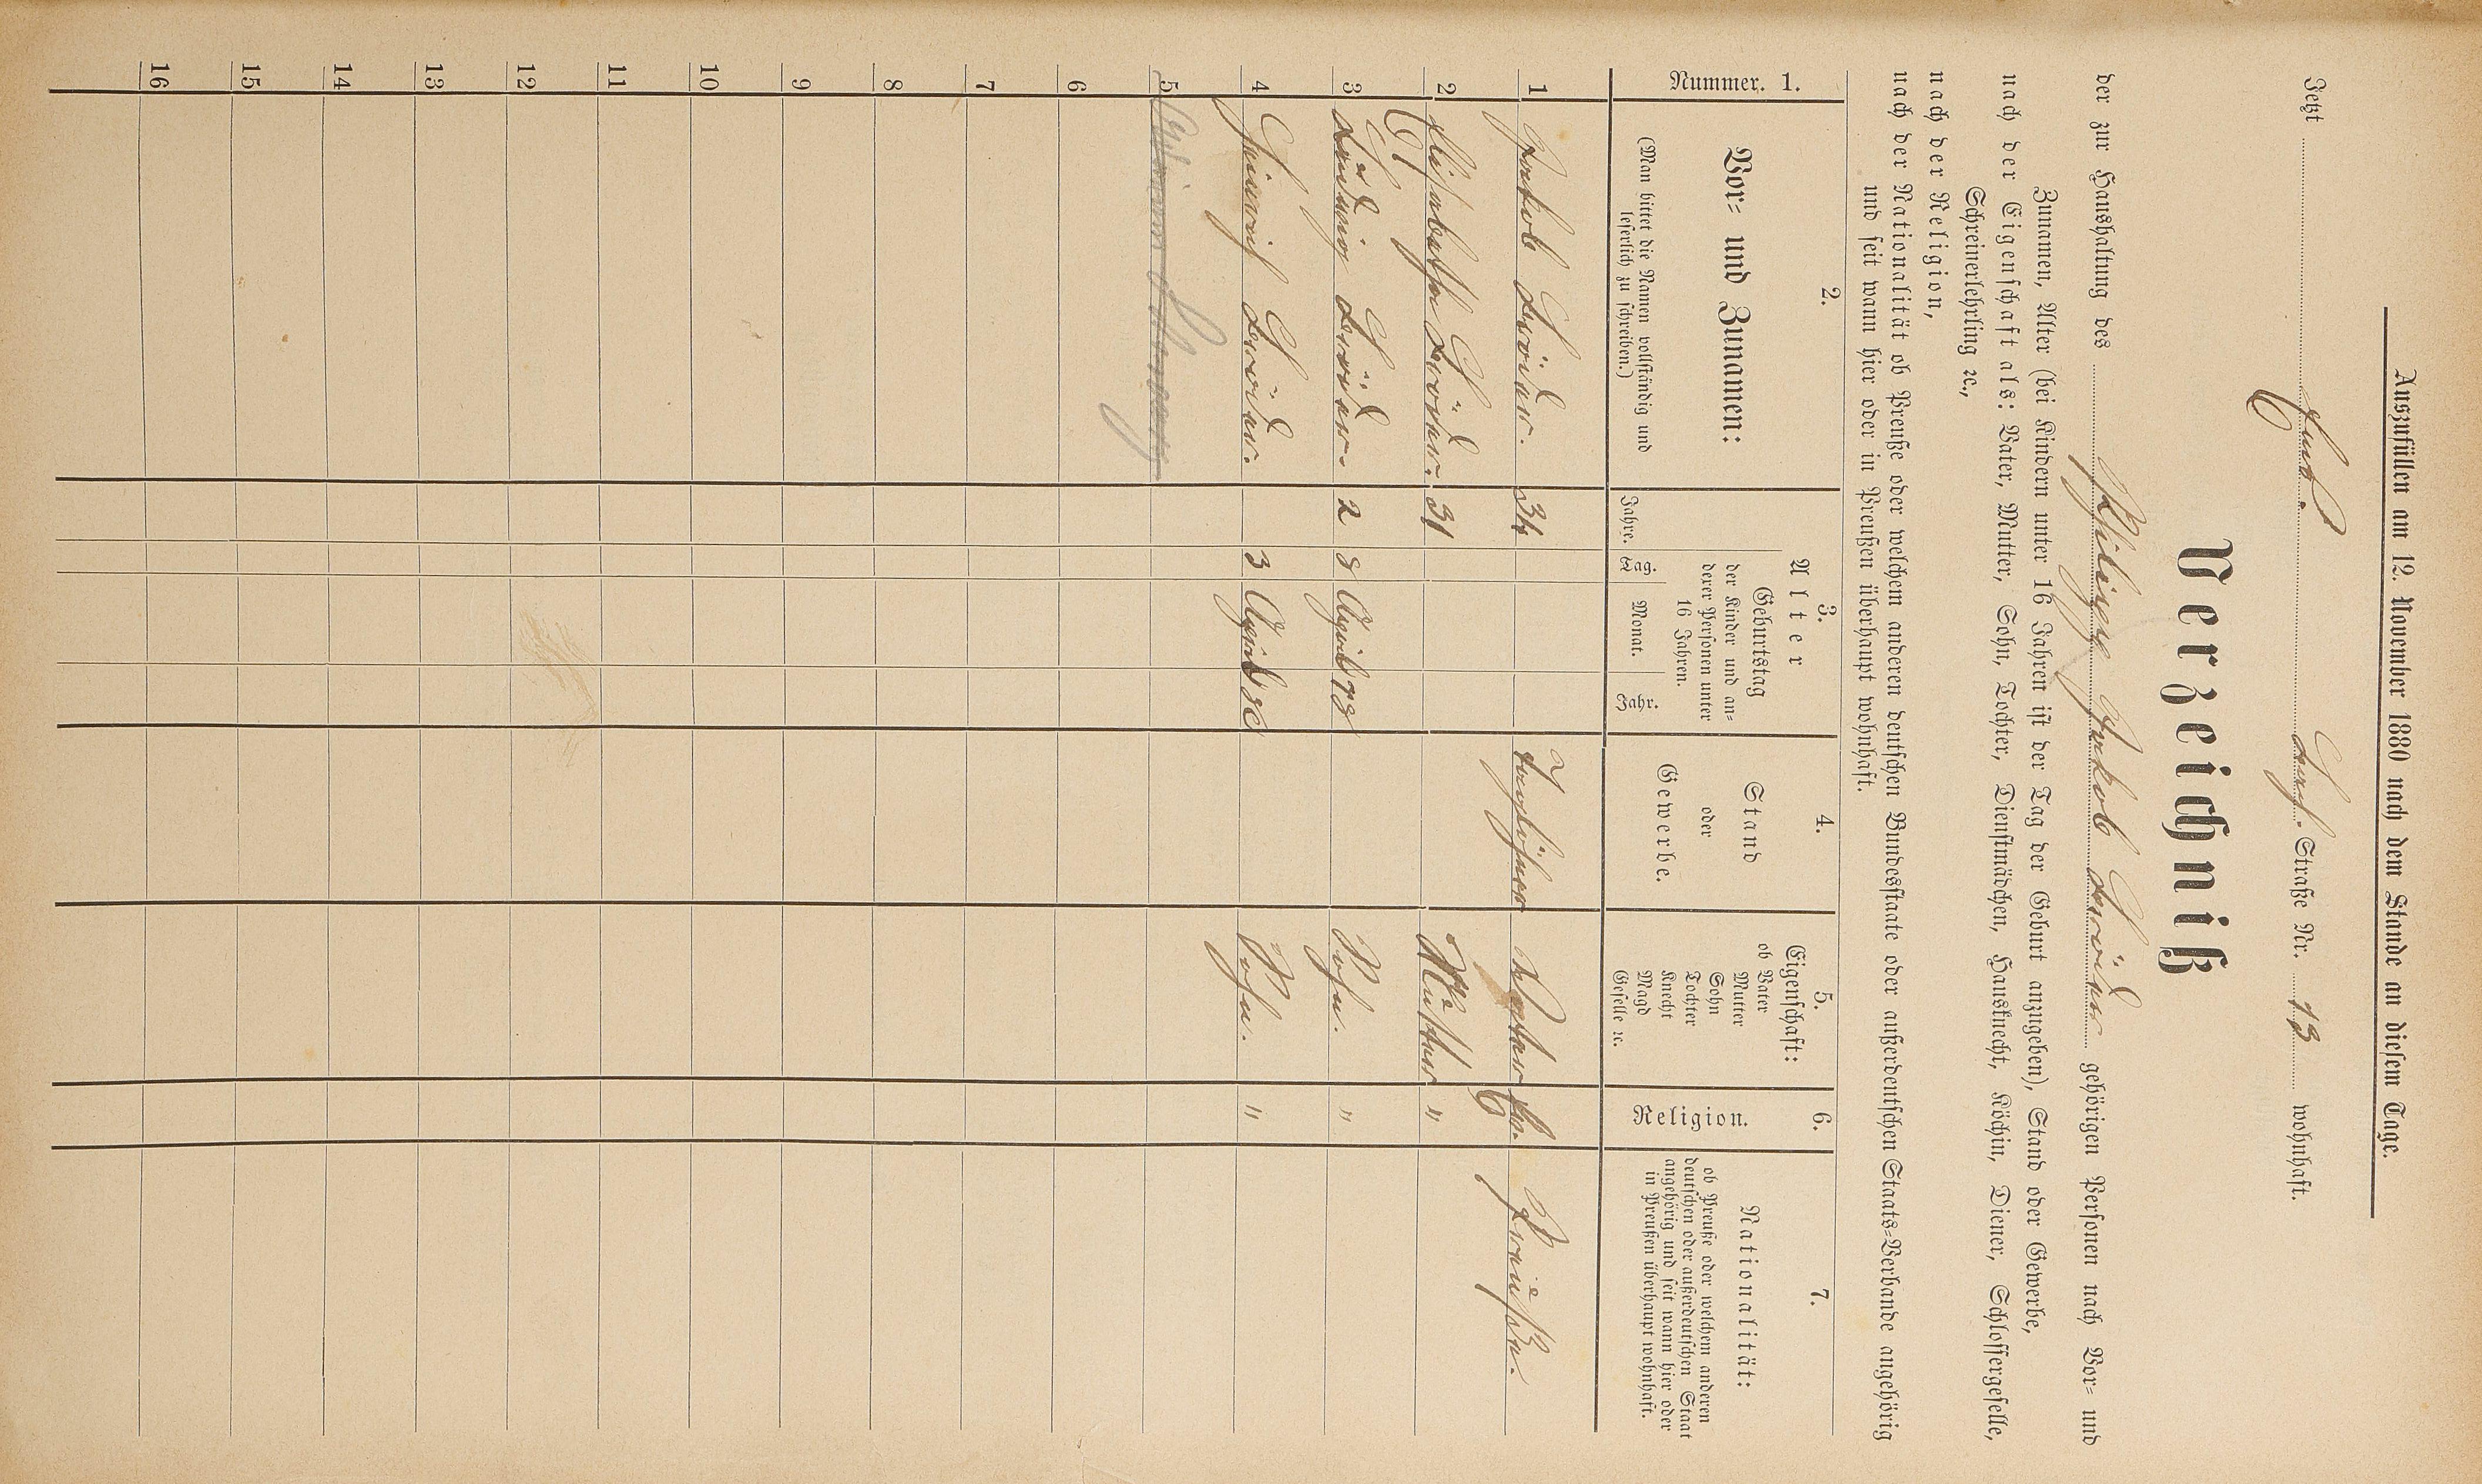 Auszufüllen am 12. November 1880 nach dem Stande an diesem Tage.
Jetzt Straße Nr. 13 wohnhaft.
Verzeichniß
der zur Haushaltung des Philipp Jakob gehörigen Personen nach Vor- und
Zunamen, Alter (bei Kindern unter 16 Jahren ist der Tag der Geburt anzugeben), Stand oder Gewerbe,
nach der Eigenschaft als: Vater, Mutter, Sohn, Tochter, Dienstmädchen, Hausknecht, Köchin, Diener, Schlossergeselle,
Schreinerlehrling ꝛc.,
nach der Religion,
nach der Nationalität ob Preuße oder welchem anderen deutschen Bundesstaate oder außerdeutschen Staats-Verbande angehörig
und seit wann hier oder in Preußen überhaupt wohnhaft.
Nummer. 1.
2.
Vor- und Zunamen:
(Man bittet die Namen vollständig und
leserlich zu schreiben.)
3.
Alter
Geburtstag
der Kinder und an-
derer Personen unter
16 Jahren.
Jahre. Tag. Monat. Jahr.
4.
Stand
oder
Gewerbe.
5.
Eigenschaft:
ob Vater
Mutter
Sohn
Tochter
Knecht
Magd
Geselle ꝛc.
6.
Religion.
7.
Nationalität:
ob Preuße oder welchem anderen
deutschen oder außerdeutschen Staat
angehörig und seit wann hier oder
in Preußen überhaupt wohnhaft.
1 Jakob 34 Taglöhner Vater Ev. Preußen.
2 Elisabetha 31 Mutter "
3 Ludwig 2 8 April 78 Sohn. "
4 Heinrich 3 April 80 Sohn. "
5
6
7
8
9
10
11
12
13
14
15
16